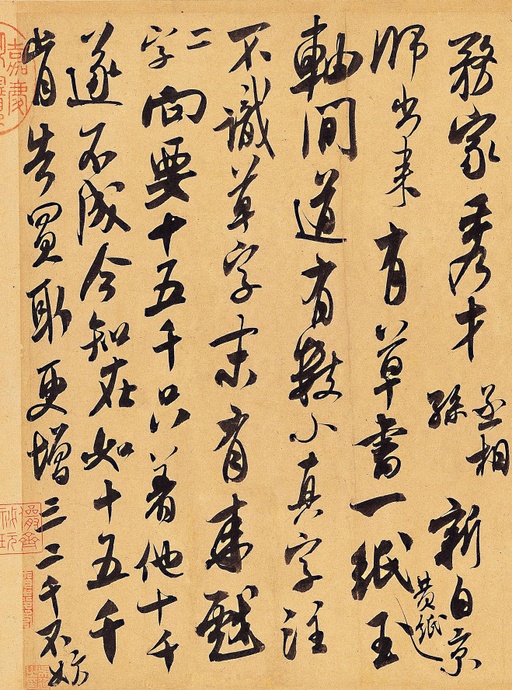 務家秀才丞相孫新自京
師出来有草書一紙黃紙玉
軸間道有数小真字注
不識草字末有来戲二
字向要十五千只著他十千
遂不成今知在如十五千
肯告買取更增三二千不妨
嘉慶